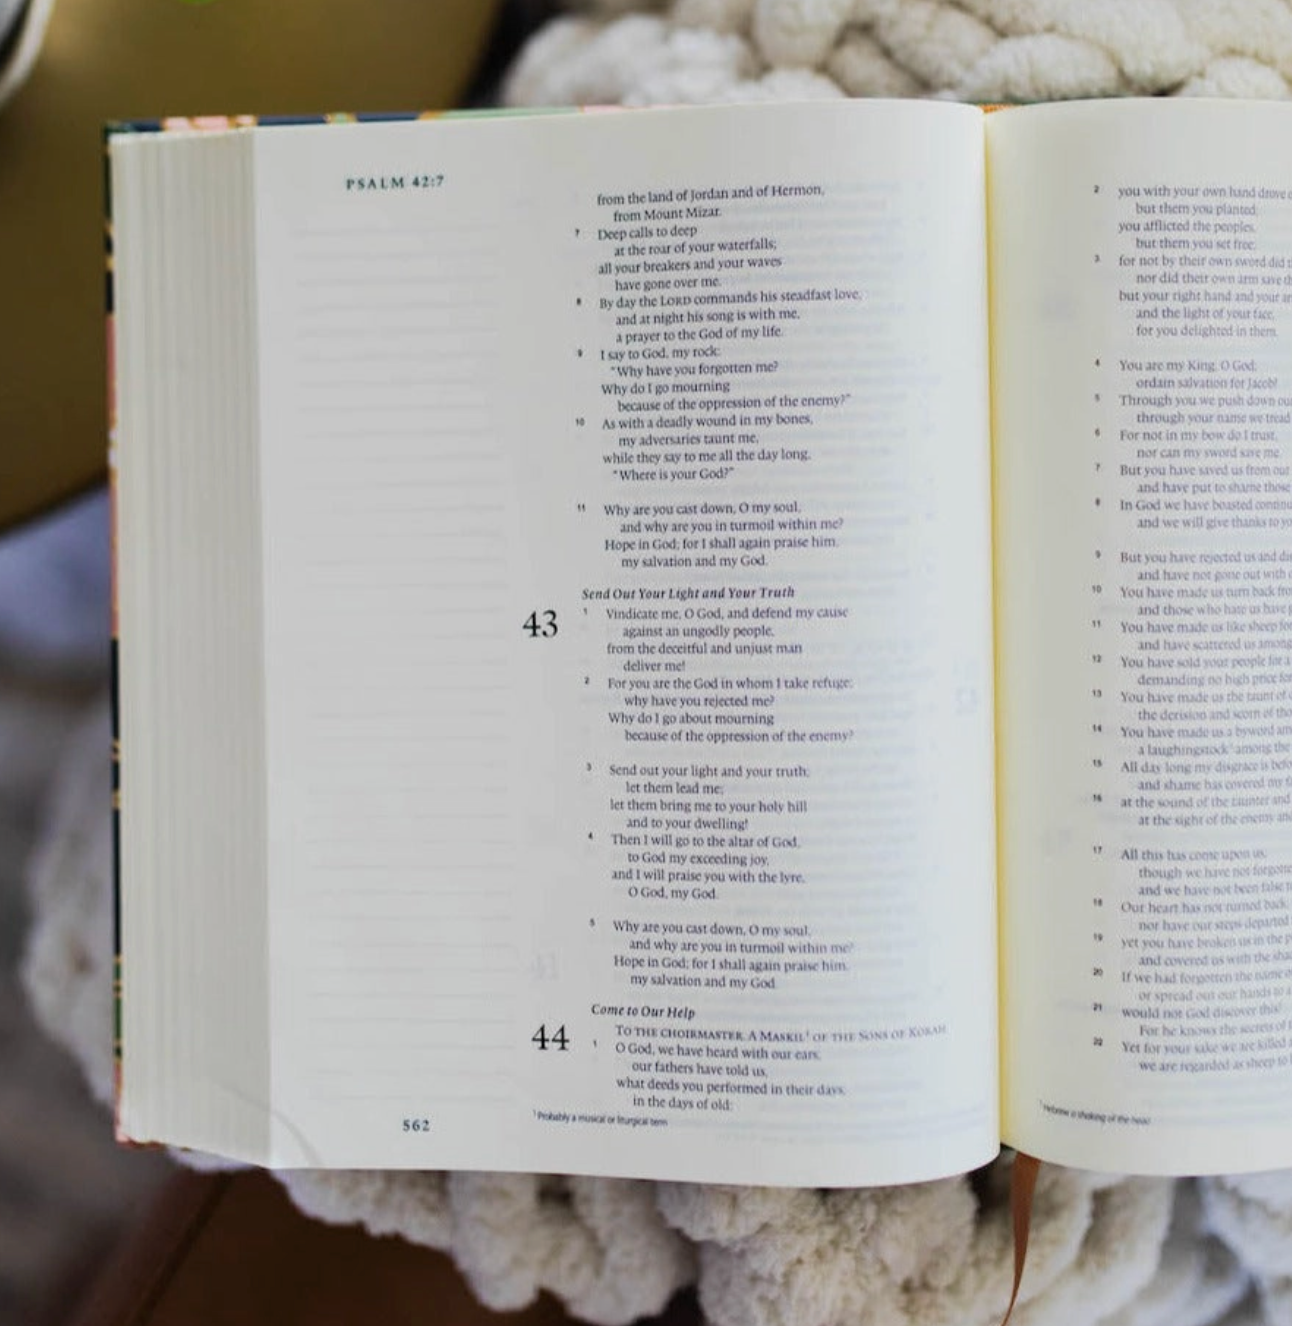 PSALM 42:7
from the land of Jordan and of Hermon,
from Mount Mizar.
7 Deep calls to deep
at the roar of your waterfalls;
all your breakers and your waves
have gone over me.
8 By day the LORD commands his steadfast love,
and at night his song is with me,
a prayer to the God of my life.
9 I say to God, my rock:
"Why have you forgotten me?
Why do I go mourning
because of the oppression of the enemy?"
10 As with a deadly wound in my bones,
my adversaries taunt me,
while they say to me all the day long,
"Where is your God?"
11 Why are you cast down, O my soul,
and why are you in turmoil within me?
Hope in God; for I shall again praise him,
my salvation and my God.
Send Out Your Light and Your Truth
43 1 Vindicate me, O God, and defend my cause
against an ungodly people,
from the deceitful and unjust man
deliver me!
2 For you are the God in whom I take refuge;
why have you rejected me?
Why do I go about mourning
because of the oppression of the enemy?
3 Send out your light and your truth;
let them lead me;
let them bring me to your holy hill
and to your dwelling!
4 Then I will go to the altar of God,
to God my exceeding joy,
and I will praise you with the lyre,
O God, my God.
5 Why are you cast down, O my soul,
and why are you in turmoil within me?
Hope in God; for I shall again praise him,
my salvation and my God.
Come to Our Help
44 TO THE CHOIRMASTER. A MASKIL1 OF THE SONS OF KORAH.
1 O God, we have heard with our ears,
our fathers have told us,
what deeds you performed in their days,
in the days of old:
1 Probably a musical or liturgical term
562
2 you with your own hand drove
but them you planted;
you afflicted the peoples,
but them you set free;
3 for not by their own sword did
nor did their own arm save
but your right hand and your
and the light of your face,
for you delighted in them.
4 You are my King, O God;
ordain salvation for Jacob!
5 Through you we push down
through your name we tread
6 For not in my bow do I trust,
nor can my sword save me.
7 But you have saved us from our
and have put to shame those
8 In God we have boasted
and we will give thanks to
9 But you have rejected us and
and have not gone out with
10 You have made us turn back
and those who hate us have
11 You have made us like sheep for
and have scattered us among
12 You have sold your people for a
demanding no high price for
13 You have made us the taunt of
the derision and scorn of
14 You have made us a byword
a laughingstock1 among the
15 All day long my disgrace is
and shame has covered my
16 at the sound of the taunter and
at the sight of the enemy
17 All this has come upon us,
though we have not
and we have not been false
18 Our heart has not turned back,
nor have our steps departed
19 yet you have broken us in the
and covered us with the
20 If we had forgotten the name
or spread out our hands to
21 would not God discover this?
For he knows the secrets of
22 Yet for your sake we are killed
we are regarded as sheep to
1 Hebrew a shaking of the head